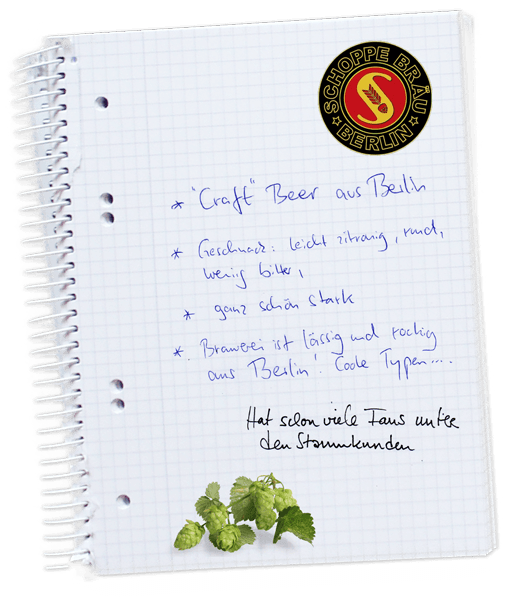 SCHOPPE BRÄU
BERLIN
* "Craft" Beer aus Berlin
* Geschmack: leicht zitronig, rund,
wenig bitter,
* ganz schön stark
* Brauerei ist lässig und rockig
aus Berlin! Coole Typen....
Hat schon viele Fans unter
den Stammkunden